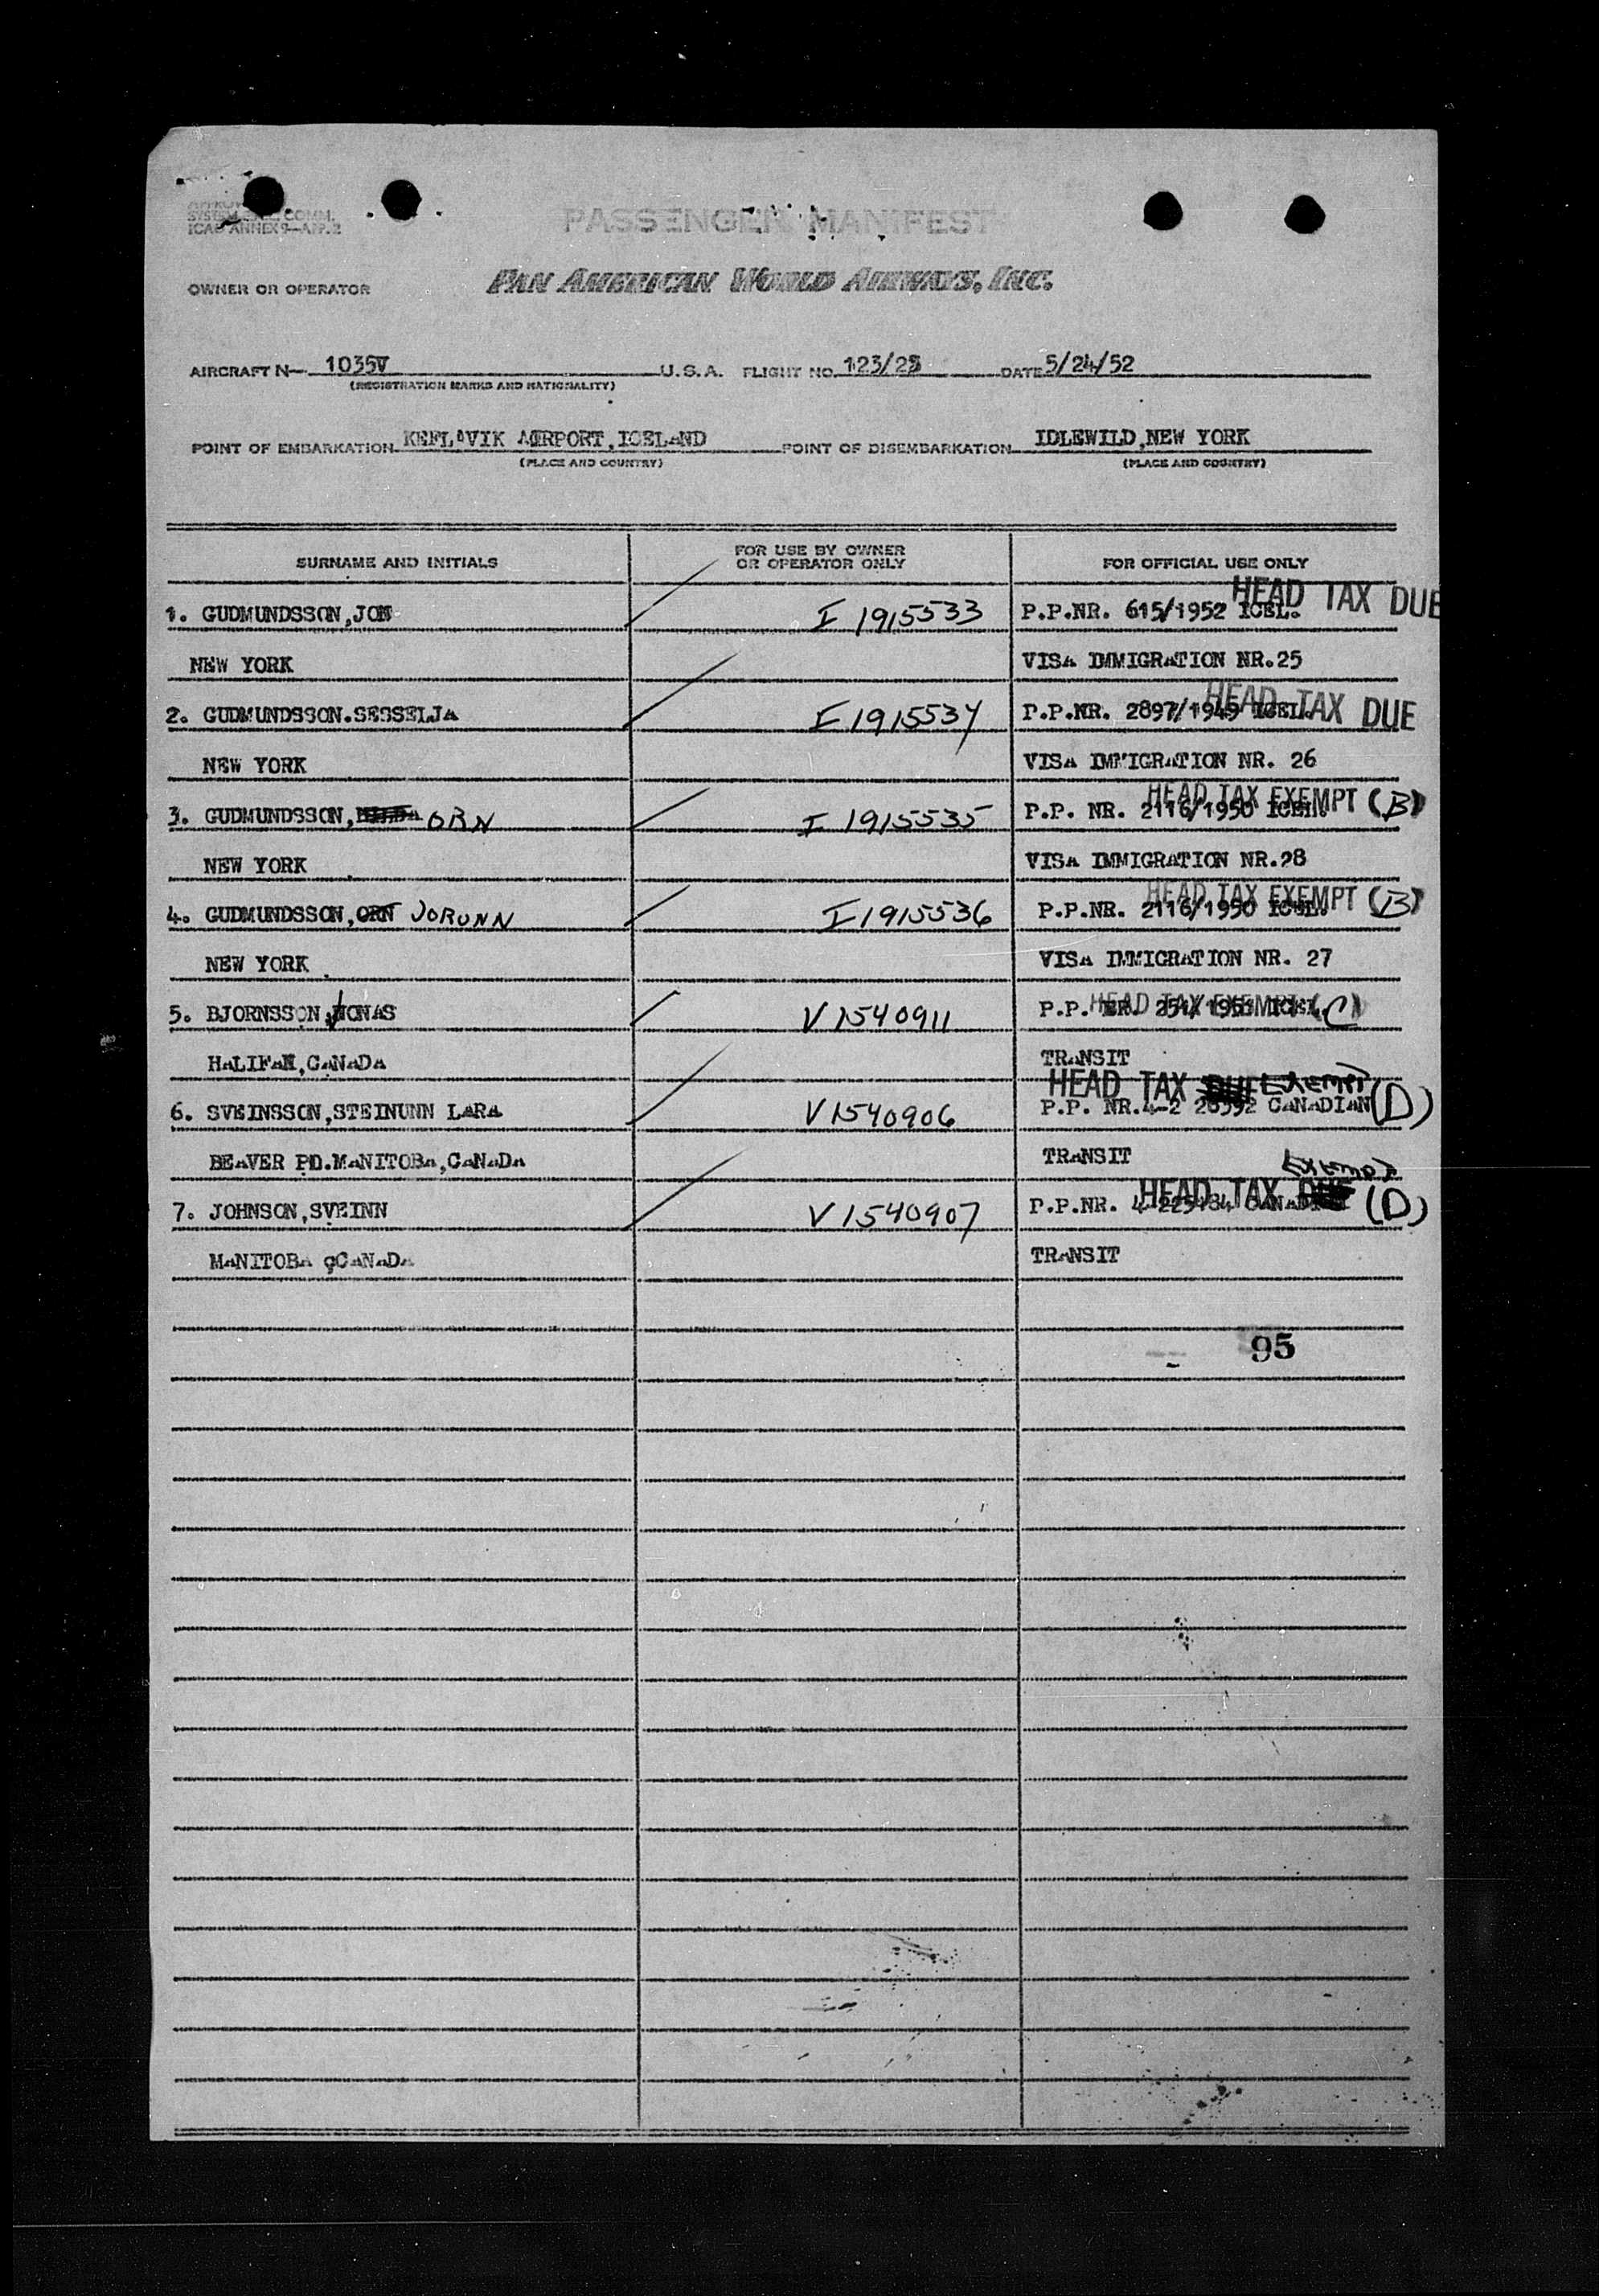 SYSTEM COMM.
ICAO ANNEX 9—APP. 2
PASSENGER MANIFEST
OWNER OR OPERATOR PAN AMERICAN WORLD AIRWAYS, INC.
AIRCRAFT N— 1035V U.S.A. FLIGHT NO. 123/23 DATE 5/24/52
(REGISTRATION MARKS AND NATIONALITY)
POINT OF EMBARKATION KEFLAVIK AIRPORT, ICELAND POINT OF DISEMBARKATION IDLEWILD, NEW YORK
(PLACE AND COUNTRY) (PLACE AND COUNTRY)
SURNAME AND INITIALS FOR USE BY OWNER OR OPERATOR ONLY FOR OFFICIAL USE ONLY
HEAD TAX DUE
1. GUDMUNDSSON, JON I 1915533 P.P.NR. 615/1952 ICEL.
NEW YORK VISA IMMIGRATION NR.25
HEAD TAX DUE
2. GUDMUNDSSON.SESSELJA I 1915534 P.P.NR. 2897/1949 ICEL.
NEW YORK VISA IMMIGRATION NR. 26
HEAD TAX EXEMPT (B)
3. GUDMUNDSSON, ORN I 1915535 P.P. NR. 2116/1950 ICEL.
NEW YORK VISA IMMIGRATION NR.28
HEAD TAX EXEMPT (B)
4. GUDMUNDSSON, ORN JORUNN I 1915536 P.P.NR. 2116/1950 ICEL.
NEW YORK VISA IMMIGRATION NR. 27
HEAD TAX EXEMPT (C)
5. BJORNSSON, JONAS V 1540911 P.P. NR.
HALIFAX, CANADA TRANSIT
HEAD TAX DUE Exempt (D)
6. SVEINSSON, STEINUNN LARA V 1540906 P.P. NR.4-2 CANADIAN
BEAVER PD.MANITOBA, CANADA TRANSIT
Exempt
HEAD TAX DUE (D)
7. JOHNSON, SVEINN V 1540907 P.P.NR.
MANITOBA CANADA TRANSIT
95